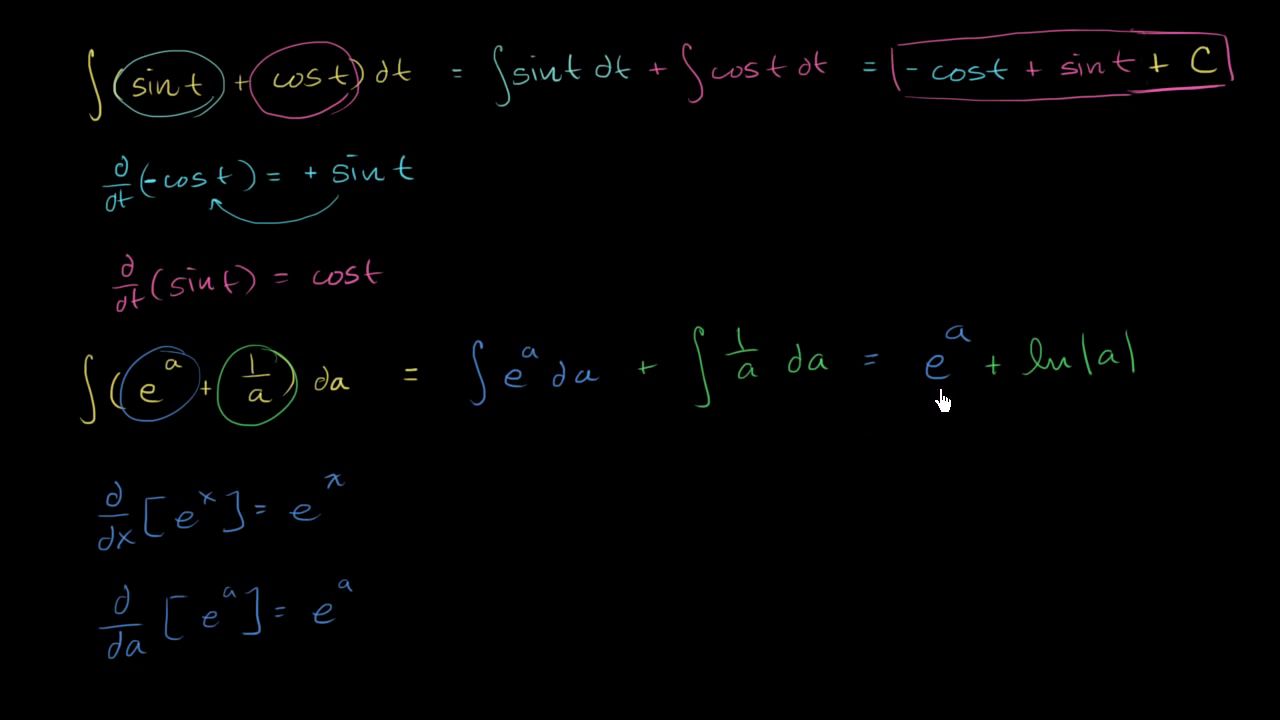 ∫(sin t + cos t) dt = ∫sin t dt + ∫cos t dt = -cos t + sin t + C
d/dt(-cos t) = + sin t
d/dt(sin t) = cos t
∫(e^a + 1/a) da = ∫e^a da + ∫1/a da = e^a + ln|a|
d/dx[e^x] = e^x
d/da[e^a] = e^a